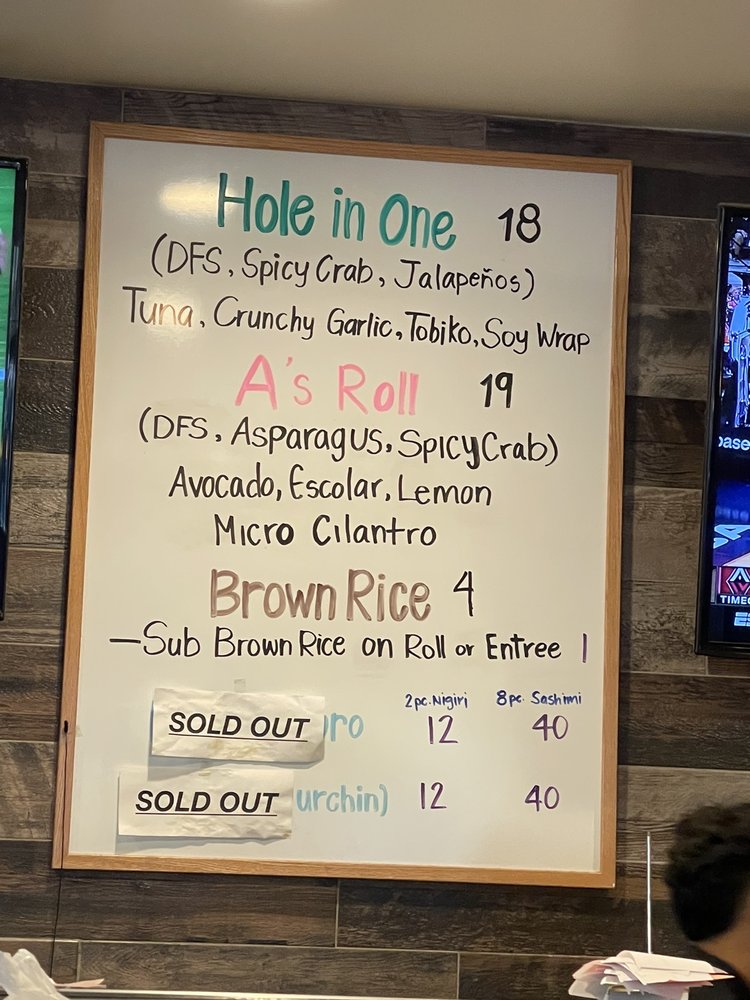 Hole in One 18
(DFS, Spicy Crab, Jalapeños)
Tuna, Crunchy Garlic, Tobiko, Soy Wrap
A's Roll 19
(DFS, Asparagus, Spicy Crab)
Avocado, Escolar, Lemon
Micro Cilantro
Brown Rice 4
—Sub Brown Rice on Roll or Entree 1
2pc. Nigiri 8pc. Sashimi
SOLD OUT ro 12 40
SOLD OUT urchin) 12 40